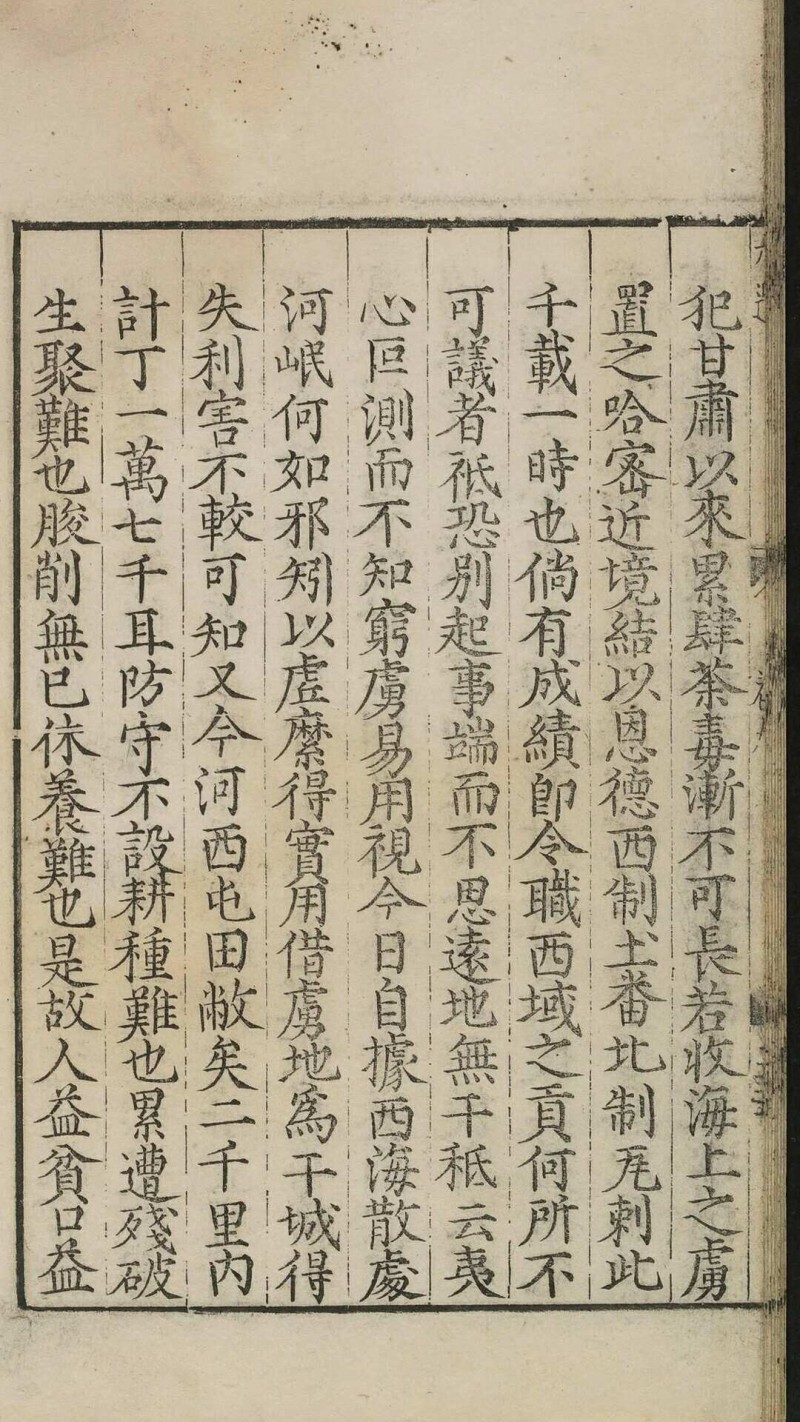 犯甘肅以來累肆荼毒漸不可長若收海上之虜
置之哈密近境結以恩德西制土番北制瓦剌此
千載一時也倘有成績即令職西域之貢何所不
可議者祗恐別起事端而不思遠地無干秪云夷
心叵測而不知窮虜易用視今日自據西海散處
河岷何如邪矧以虛縻得實用借虜地爲干城得
失利害不較可知又今河西屯田敝矣二千里內
計丁一萬七千耳防守不設耕種難也累遭殘破
生聚難也朘削無已休養難也是故人益貧口益